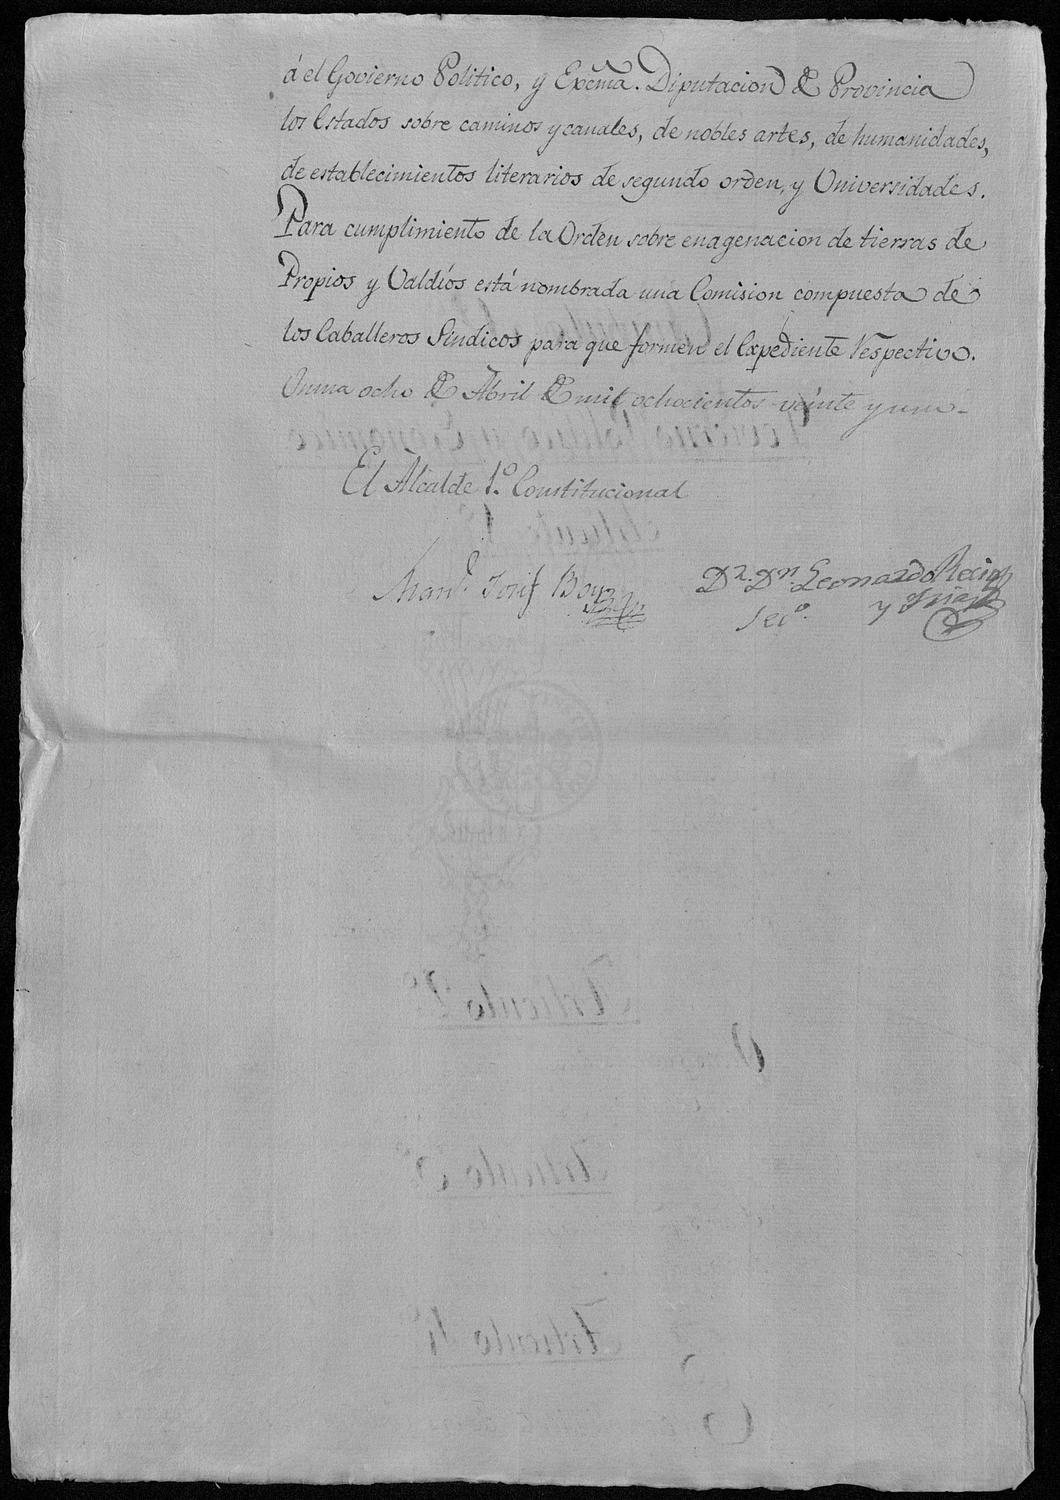 á el Govierno Politico, y Excma. Diputacion de Provincia
los Estados sobre caminos y canales, de nobles artes, de humanidades,
de establecimientos literarios de segundo orden, y Universidades.
Para cumplimiento de la Orden sobre enagenacion de tierras de
Propios y Valdíos está nombrada una Comision compuesta de
los Caballeros Sindicos para que formen el Expediente respectivo.
ocho de Abril de mil ochocientos veinte y uno.
El Alcalde 1.º Constitucional
Man.l José
Dr. Dn. Leonardo
Seció. y
Govierno Politico y Economico
Articulo 1º
Articulo 2º
Articulo 3º
Articulo 4º